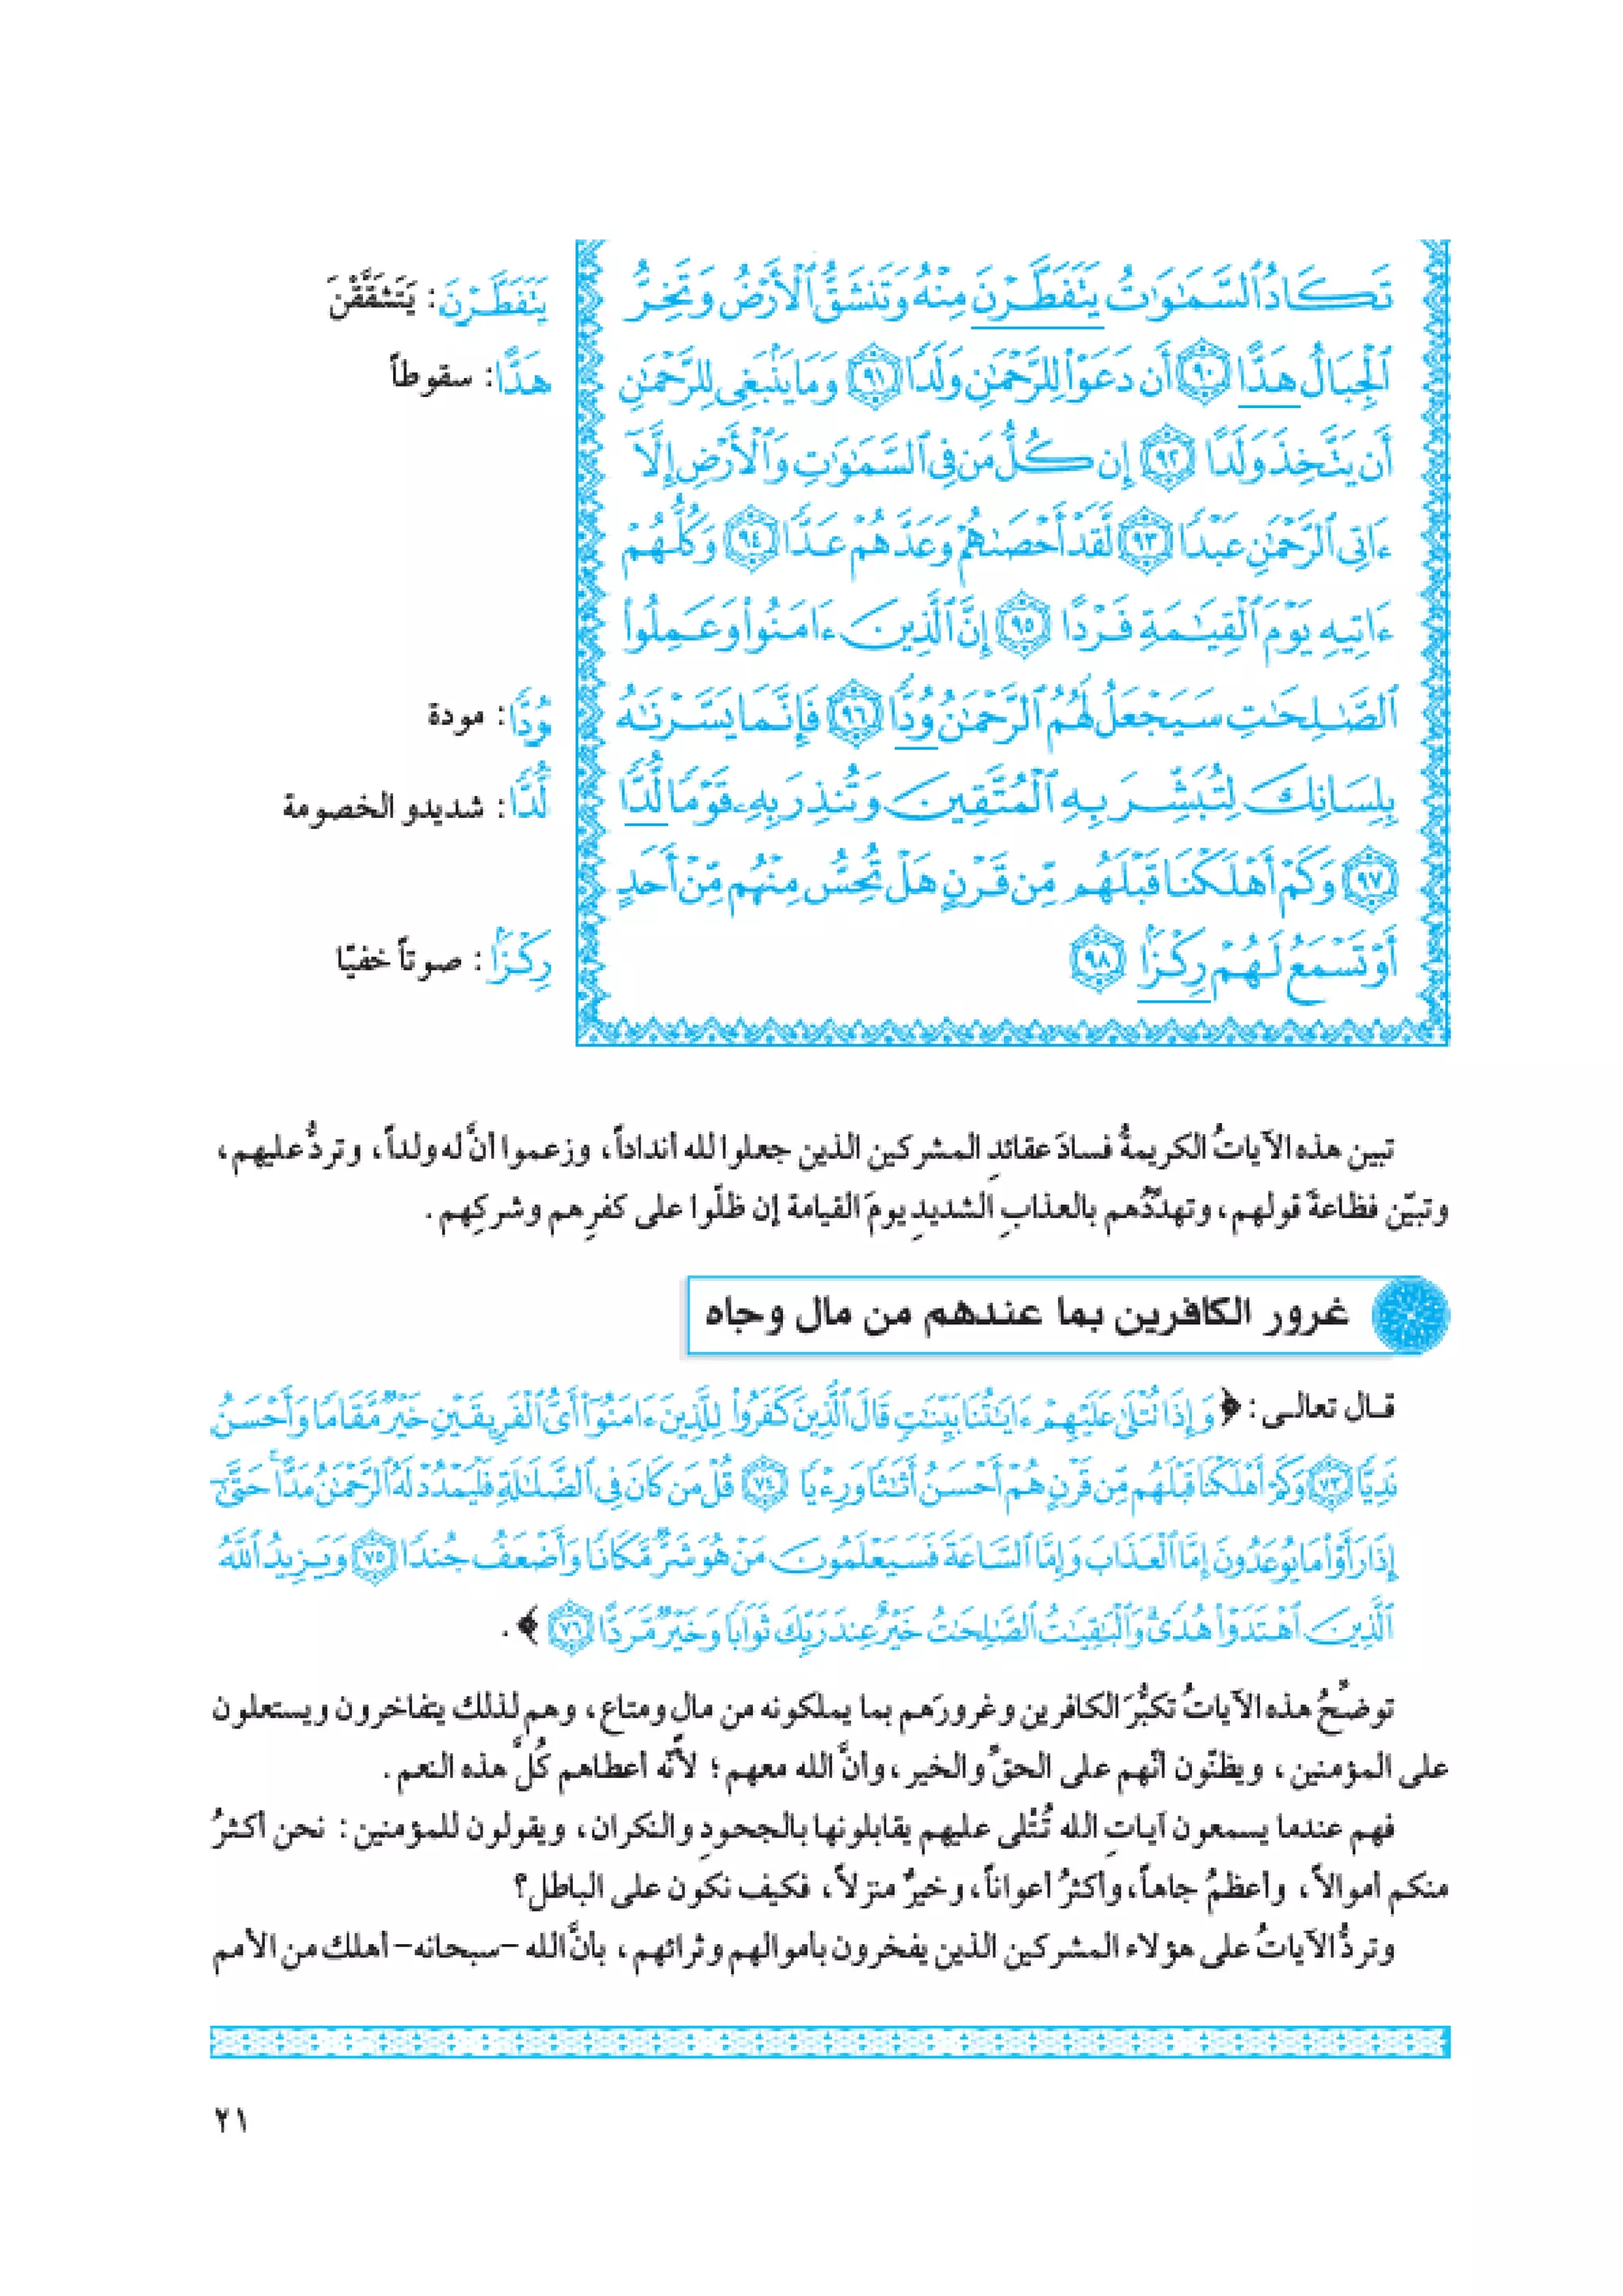 تَكَادُ ٱلسَّمَٰوَٰتُ يَتَفَطَّرْنَ مِنْهُ وَتَنشَقُّ ٱلْأَرْضُ وَتَخِرُّ
ٱلْجِبَالُ هَدًّا ٩٠ أَن دَعَوْا۟ لِلرَّحْمَٰنِ وَلَدًا ٩١ وَمَا يَنۢبَغِى لِلرَّحْمَٰنِ
أَن يَتَّخِذَ وَلَدًا ٩٢ إِن كُلُّ مَن فِى ٱلسَّمَٰوَٰتِ وَٱلْأَرْضِ إِلَّآ
ءَاتِى ٱلرَّحْمَٰنِ عَبْدًا ٩٣ لَّقَدْ أَحْصَىٰهُمْ وَعَدَّهُمْ عَدًّا ٩٤ وَكُلُّهُمْ
ءَاتِيهِ يَوْمَ ٱلْقِيَٰمَةِ فَرْدًا ٩٥ إِنَّ ٱلَّذِينَ ءَامَنُوا۟ وَعَمِلُوا۟
ٱلصَّٰلِحَٰتِ سَيَجْعَلُ لَهُمُ ٱلرَّحْمَٰنُ وُدًّا ٩٦ فَإِنَّمَا يَسَّرْنَٰهُ
بِلِسَانِكَ لِتُبَشِّرَ بِهِ ٱلْمُتَّقِينَ وَتُنذِرَ بِهِۦ قَوْمًا لُّدًّا
٩٧ وَكَمْ أَهْلَكْنَا قَبْلَهُم مِّن قَرْنٍ هَلْ تُحِسُّ مِنْهُم مِّنْ أَحَدٍ
أَوْ تَسْمَعُ لَهُمْ رِكْزًۢا ٩٨
يَتَفَطَّرْنَ : يَتَشَقَّقْنَ
هَدًّا : سقوطاً
وُدًّا : مودة
لُّدًّا : شديدو الخصومة
رِكْزًۢا : صوتاً خفيّا
تبين هذه الآياتُ الكريمةُ فسادَ عقائدِ المشركين الذين جعلوا لله أنداداً، وزعموا أنَّ له ولداً، وتردُّ عليهم،
وتبيّن فظاعةَ قولهم، وتهدِّدُهم بالعذابِ الشديدِ يومَ القيامة إن ظلّوا على كفرِهم وشركِهم .
غرور الكافرين بما عندهم من مال وجاه
قـال تعالـى : ﴿ وَإِذَا تُتْلَىٰ عَلَيْهِمْ ءَايَٰتُنَا بَيِّنَٰتٍ قَالَ ٱلَّذِينَ كَفَرُوا۟ لِلَّذِينَ ءَامَنُوٓا۟ أَىُّ ٱلْفَرِيقَيْنِ خَيْرٌ مَّقَامًا وَأَحْسَنُ
نَدِيًّا ٧٣ وَكَمْ أَهْلَكْنَا قَبْلَهُم مِّن قَرْنٍ هُمْ أَحْسَنُ أَثَٰثًا وَرِءْيًا ٧٤ قُلْ مَن كَانَ فِى ٱلضَّلَٰلَةِ فَلْيَمْدُدْ لَهُ ٱلرَّحْمَٰنُ مَدًّا ۚ حَتَّىٰٓ
إِذَا رَأَوْا۟ مَا يُوعَدُونَ إِمَّا ٱلْعَذَابَ وَإِمَّا ٱلسَّاعَةَ فَسَيَعْلَمُونَ مَنْ هُوَ شَرٌّ مَّكَانًا وَأَضْعَفُ جُندًا ٧٥ وَيَزِيدُ ٱللَّهُ
ٱلَّذِينَ ٱهْتَدَوْا۟ هُدًى ۗ وَٱلْبَٰقِيَٰتُ ٱلصَّٰلِحَٰتُ خَيْرٌ عِندَ رَبِّكَ ثَوَابًا وَخَيْرٌ مَّرَدًّا ٧٦ ﴾ .
توضِّحُ هذه الآياتُ تكبُّرَ الكافرين وغرورَهم بما يملكونه من مالٍ ومتاع، وهم لذلك يتفاخرون ويستعلون
على المؤمنين، ويظنّون أنّهم على الحقِّ والخير، وأنَّ الله معهم؛ لأنّه أعطاهم كُلَّ هذه النعم.
فهم عندما يسمعون آياتِ الله تُتْلى عليهم يقابلونها بالجحودِ والنكران، ويقولون للمؤمنين : نحن أكثرُ
منكم أموالاً، وأعظمُ جاهاً، وأكثرُ أعواناً، وخيرٌ منزلاً، فكيف نكون على الباطل؟
وتردُّ الآياتُ على هؤلاء المشركين الذين يفخرون بأموالهم وثرائهم، بأنَّ الله -سبحانه- أهلك من الأمم
٢١